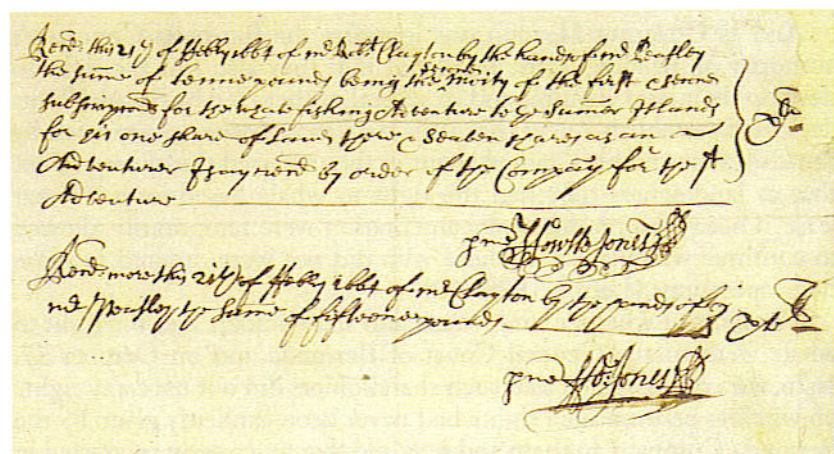 Recd this 21th of Febry 1664 of mr Robt Clayton by the hands of mr Peasley
the summe of tenne pounds being the moity of the first
subscriptions for the whale fishing Adventure to ye Summer Islands
for his one share of Land there & seaven shares as an
Adventurer I say recd by order of the Company for the sd
Adventure
pr me Howell Jones
Recd more this 21th of Febry 1664 of mr Clayton by the hands of
mr Peasley the summe of fifteene pounds
pr me Ho: Jones